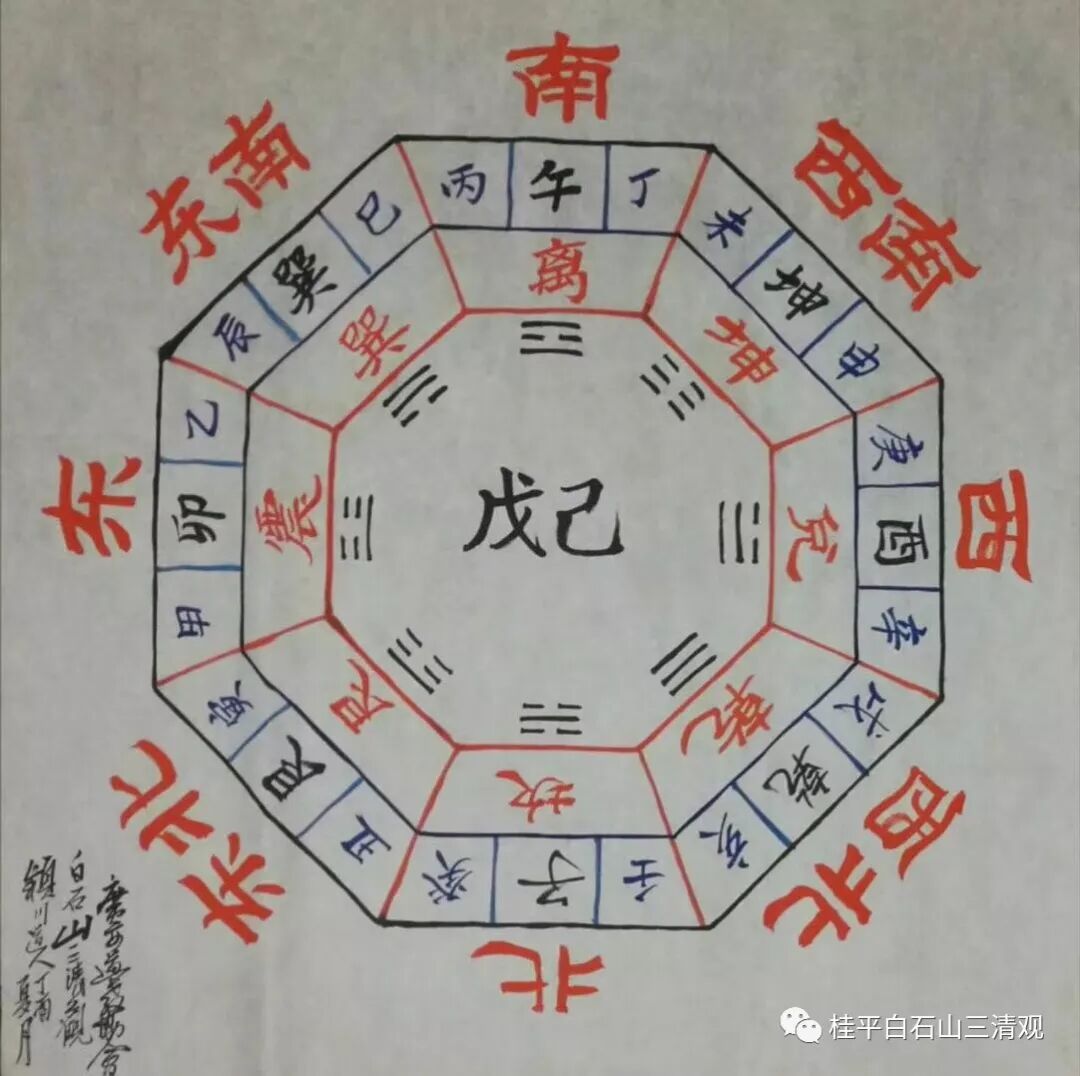 南
西南
西
西北
北
东北
东
东南
丙 午 丁
未 坤 申
庚 酉 辛
戌 乾 亥
壬 子 癸
丑 艮 寅
甲 卯 乙
辰 巽 巳
离
坤
兑
乾
坎
艮
震
巽
戊己
白石山三清观
颍川道人丁酉
夏月
桂平白石山三清观